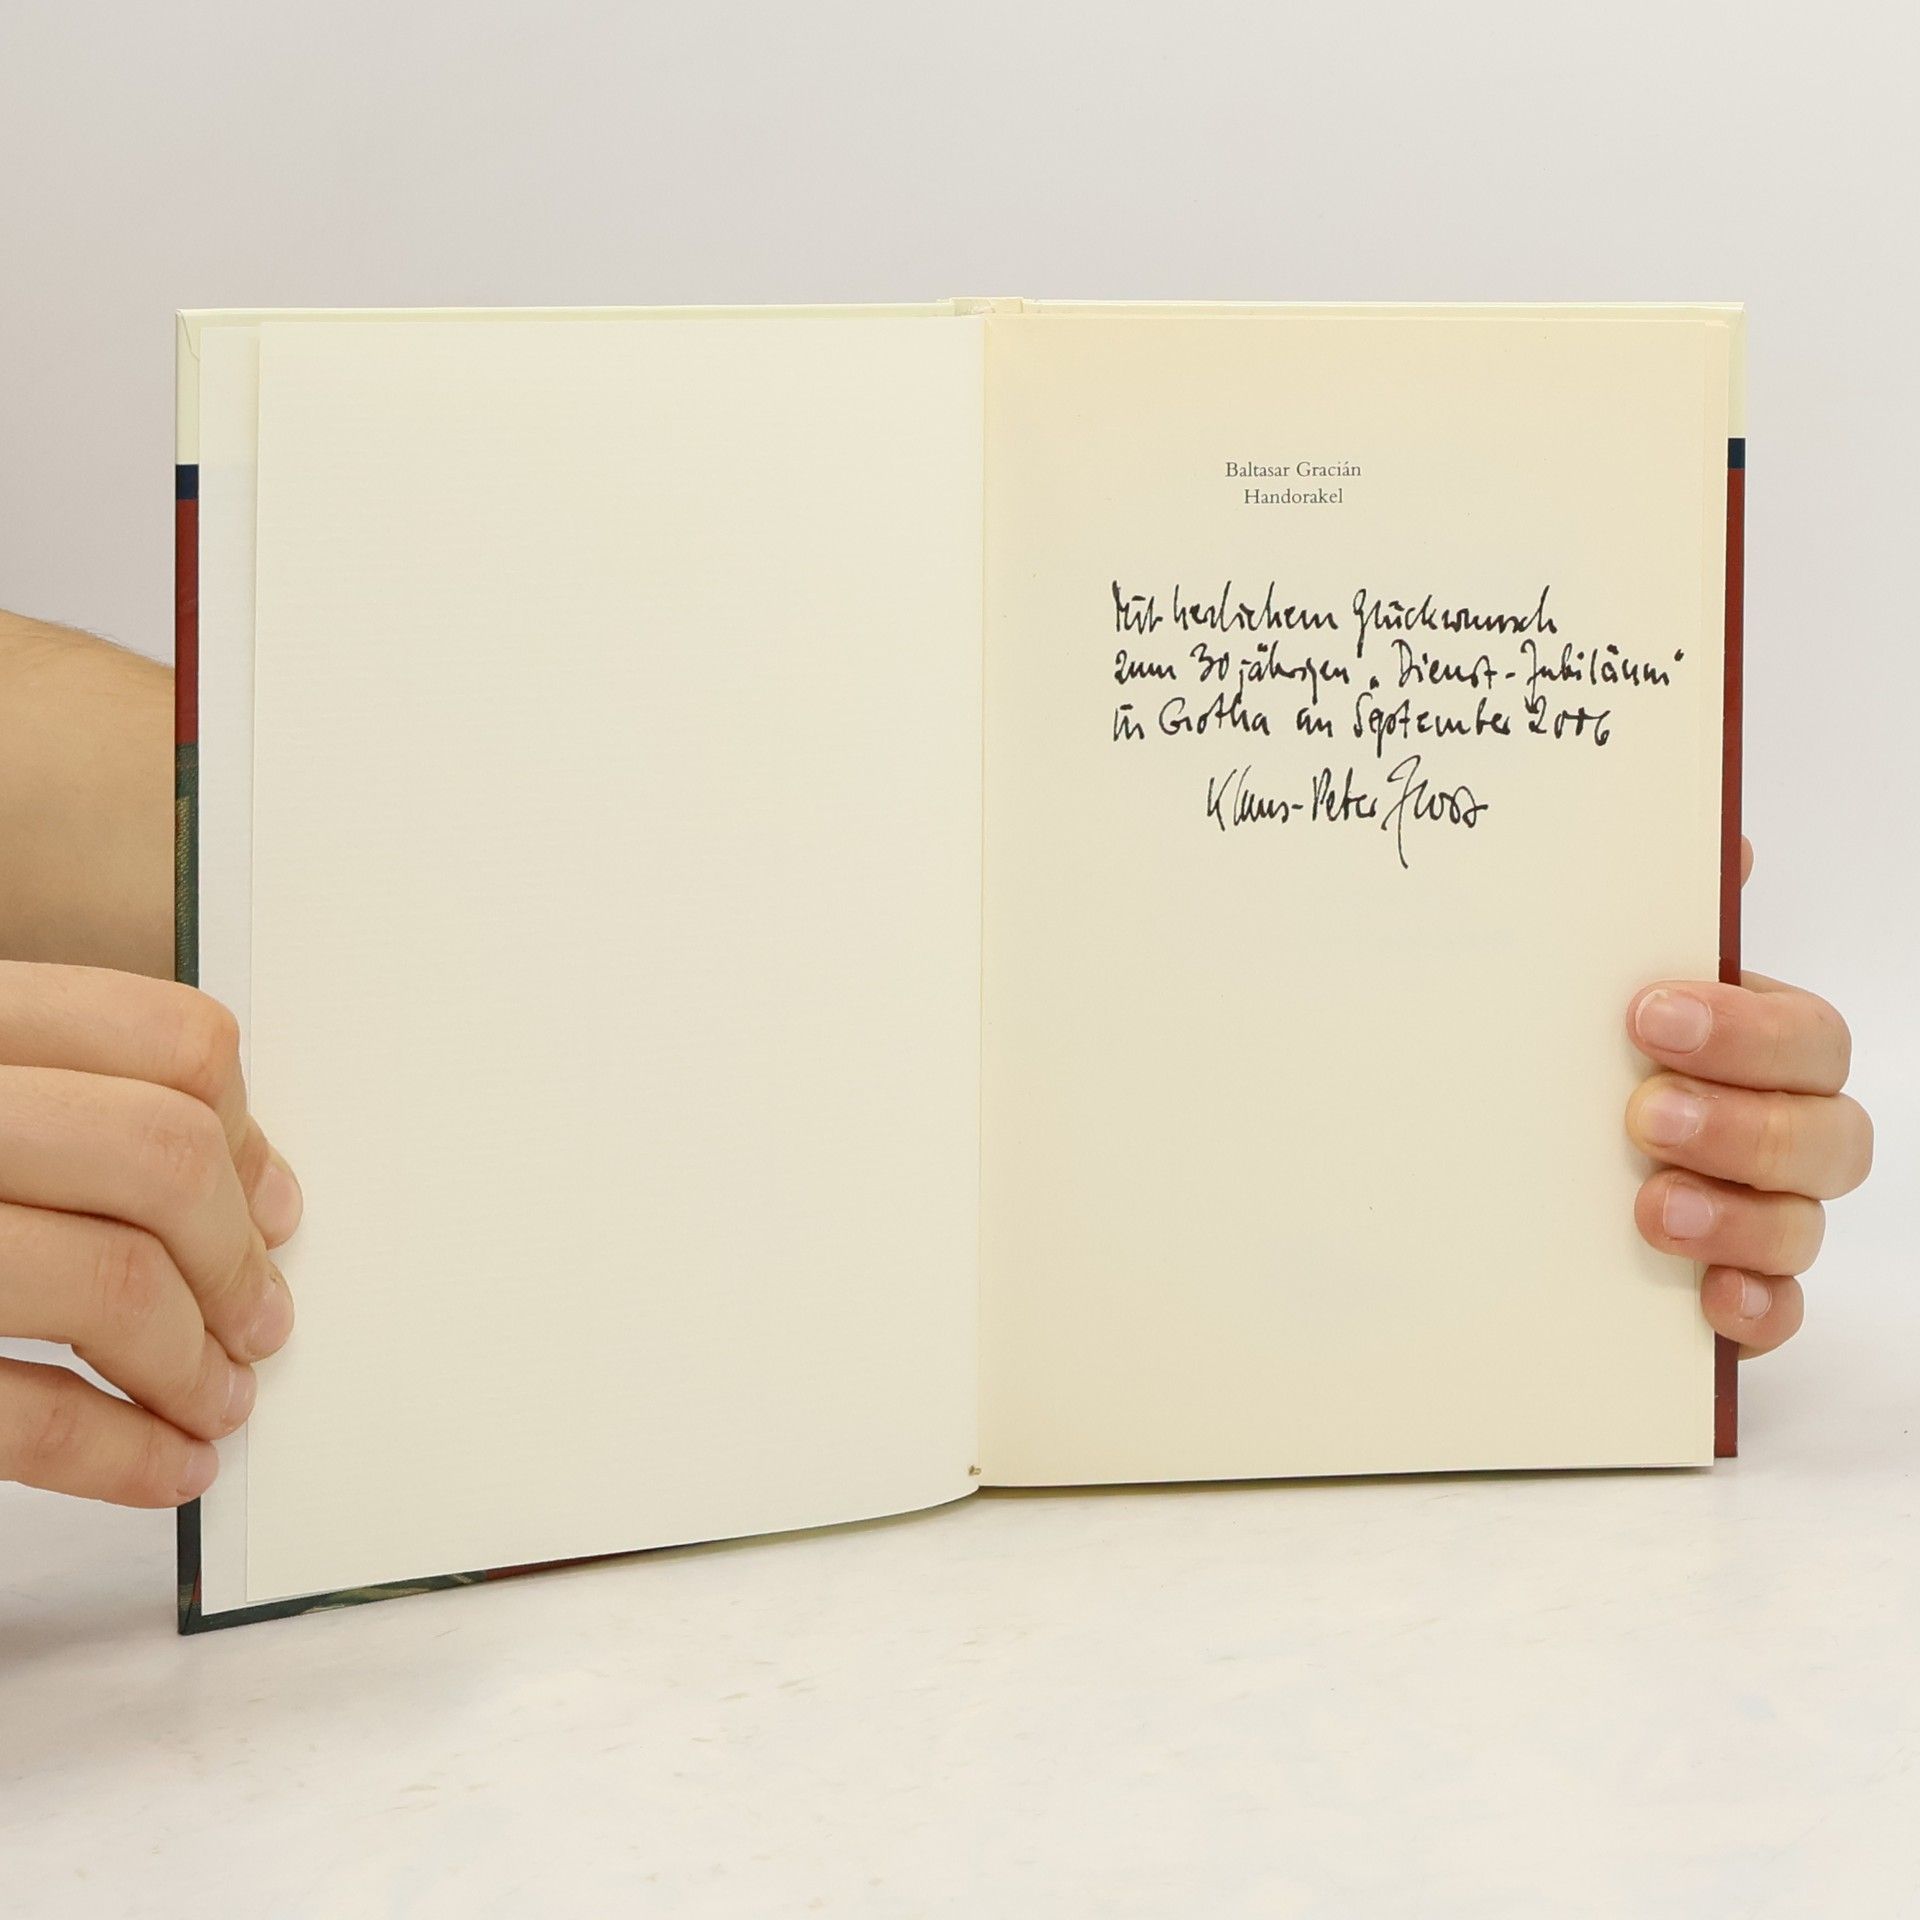 Baltasar Gracián
Handorakel
Mit herzlichem Glückwunsch
zum 30jährigen „Dienst-Jubiläum“
in Gotha im September 2006
Klaus-Peter